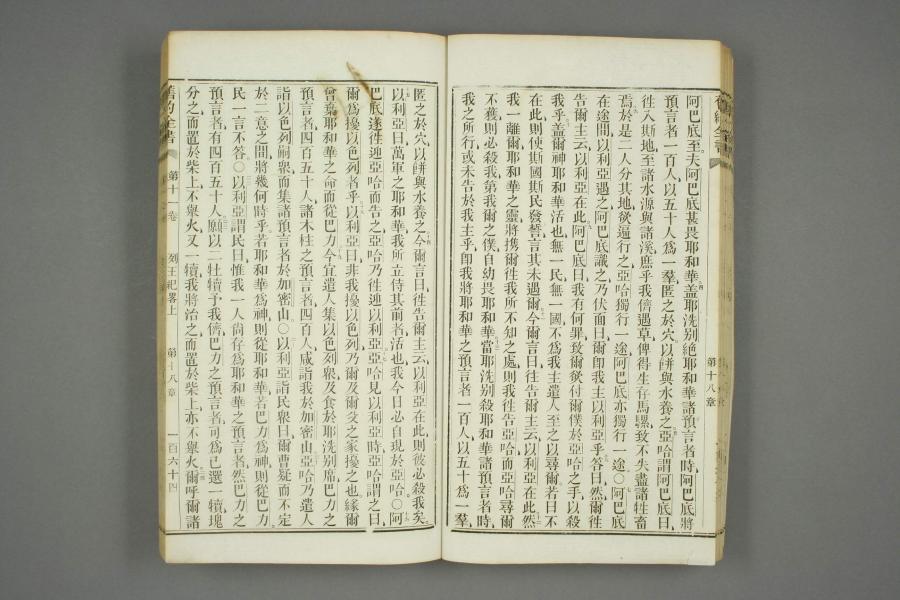 第十八章
阿巴底至夫阿巴底甚畏耶和華盖耶洗别絶耶和華諸預言者時阿巴底將
預言者一百人以五十人爲一羣匿之於穴以餅與水養之亞哈謂阿巴底曰
徃入斯地至諸水源與諸溪庶乎我儕遇草俾得生存馬騾致不失盡諸牲畜
焉於是二人分其地欲遍行之亞哈獨行一途阿巴底亦獨行一途〇阿巴底
在途間以利亞遇之阿巴底識之乃伏面曰爾卽我主以利亞乎答曰然爾徃
告爾主云以利亞在此阿巴底曰我有何罪致爾欲付爾僕於亞哈之手以殺
我乎盖爾神耶和華活也無一民無一國不爲我主遣人至之以尋爾若曰不
在此則使斯國斯民發誓言其未遇爾今爾言曰徃告爾主云以利亞在此然
我一離爾耶和華之靈將携爾徃我所不知之處則我徃告亞哈而亞哈尋爾
不獲則必殺我第我爾之僕自幼畏耶和華當耶洗别殺耶和華諸預言者時
我之所行或未告於我主乎卽我將耶和華之預言者一百人以五十爲一羣
匿之於穴以餅與水養之今爾言曰徃告爾主云以利亞在此則彼必殺我矣
以利亞曰萬軍之耶和華我所立侍其前者活也我今日必自現於亞哈〇阿
巴底遂徃迎亞哈而告之亞哈乃徃迎以利亞亞哈見以利亞時亞哈謂之曰
爾爲擾以色列者乎以利亞曰非我擾以色列乃爾及爾父之家擾之也緣爾
曾棄耶和華之命而從巴力今宜遣人集以色列衆及食於耶洗别席巴力之
預言者四百五十人諸木柱之預言者四百人咸詣我於加密山亞哈乃遣人
詣以色列嗣衆而集諸預言者於加密山〇以利亞詣民衆曰爾曹疑而不定
於二意之間將幾何時乎若耶和華爲神則從耶和華若巴力爲神則從巴力
民一言不答〇以利亞謂民曰惟我一人尙存爲耶和華之預言者然巴力之
預言者有四百五十人願以二牡犢予我儕巴力之預言者可爲己選一犢塊
分之而置於柴上不舉火又一犢我將治之而置於柴上亦不舉火爾呼爾諸
舊約全書 第十一卷 列王紀畧上 第十八章 一百六十四